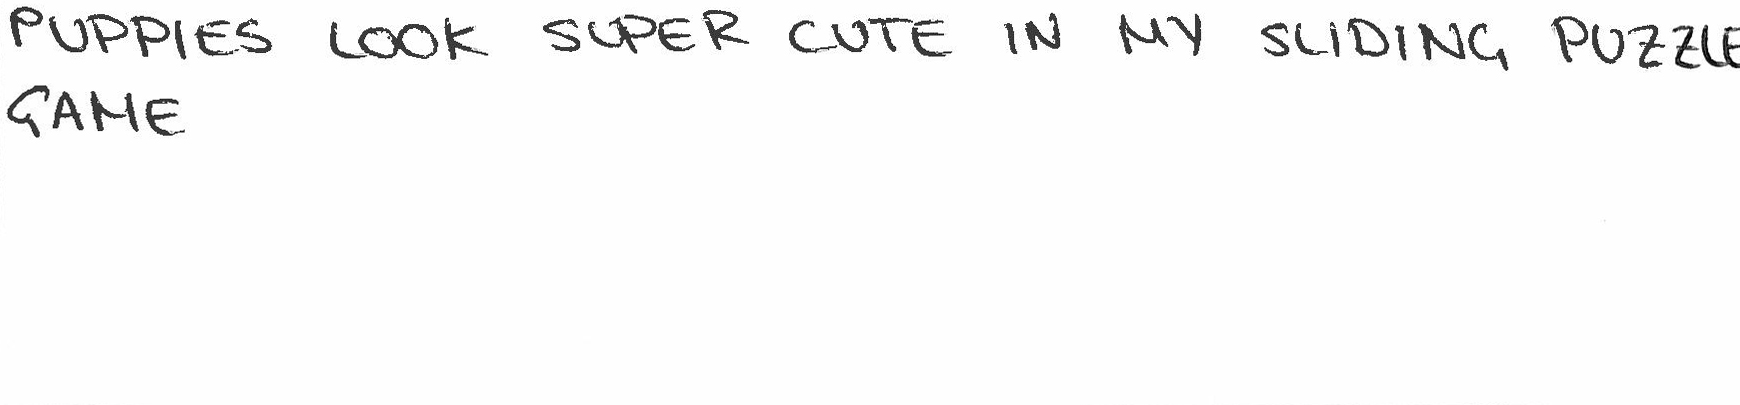 PUPPIES LOOK SUPER CUTE IN MY SLIDING PUZZLE
GAME